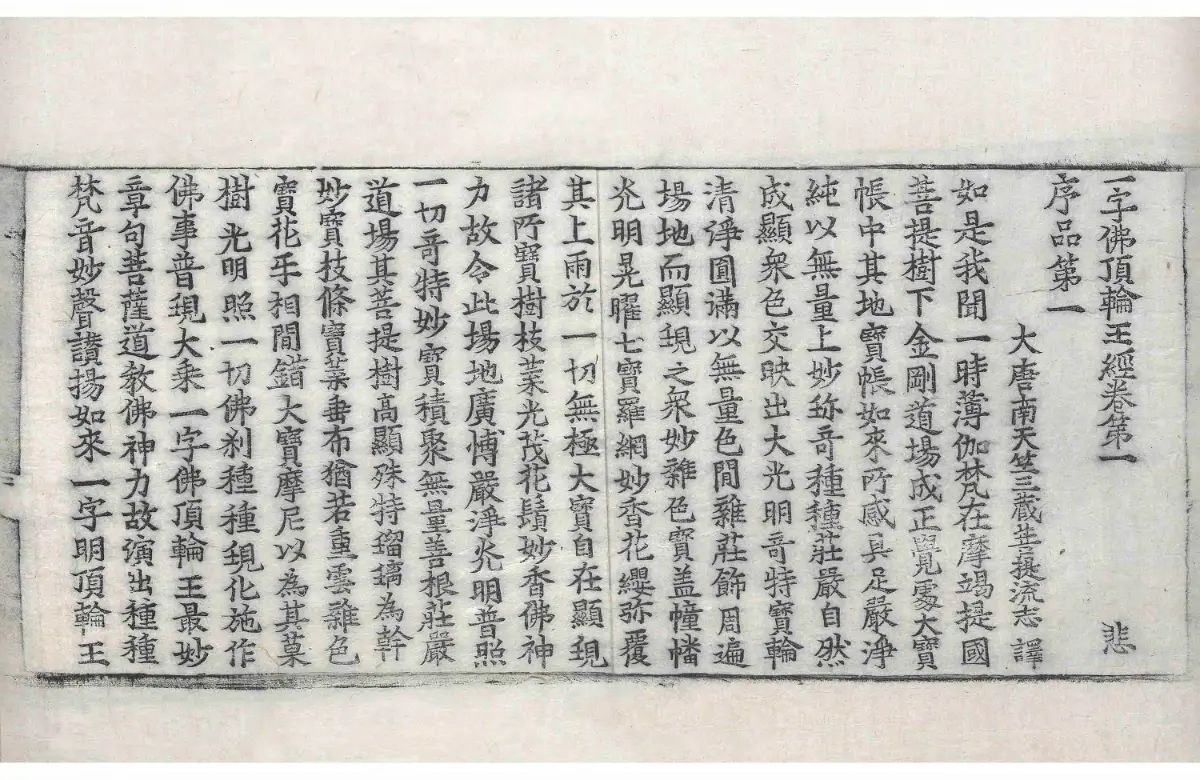 一字佛頂輪王經卷第一 悲
序品第一
大唐南天竺三藏菩提流志譯
如是我聞一時薄伽梵在摩竭提國
菩提樹下金剛道場成正覺處大寶
帳中其地寶帳如來所感具足嚴淨
純以無量上妙珎奇種種莊嚴自然
成顯衆色交映出大光明奇特寶輪
清淨圓滿以無量色間雜莊飾周遍
場地而顯現之衆妙雜色寶盖幢幡
光明晃曜七寶羅網妙香花纓弥覆
其上雨於一切無極大寶自在顯現
諸所寶樹枝葉光茂花鬚妙香佛神
力故令此場地廣博嚴淨光明普照
一切奇特妙寶積聚無量善根莊嚴
道場其菩提樹高顯殊特瑠璃為幹
妙寶枝條寶葉垂布猶若重雲雜色
寶花手相間錯大寶摩尼以為其菓
樹光明照一切佛刹種種現化施作
佛事普現大乘一字佛頂輪王最妙
章句菩薩道教佛神力故演出種種
梵音妙聲讚揚如來一字明頂輪王